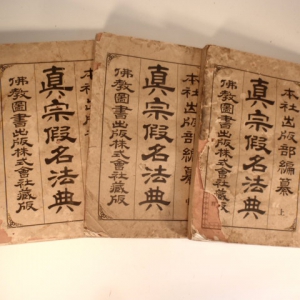 本社出版部編纂 上
真宗假名法典
佛敎圖書出版株式會社藏版
本社出版部編纂
真宗假名法典
佛敎圖書出版株式會社藏版
本社出版
真宗假名法典
佛敎圖書出版株式會社藏版